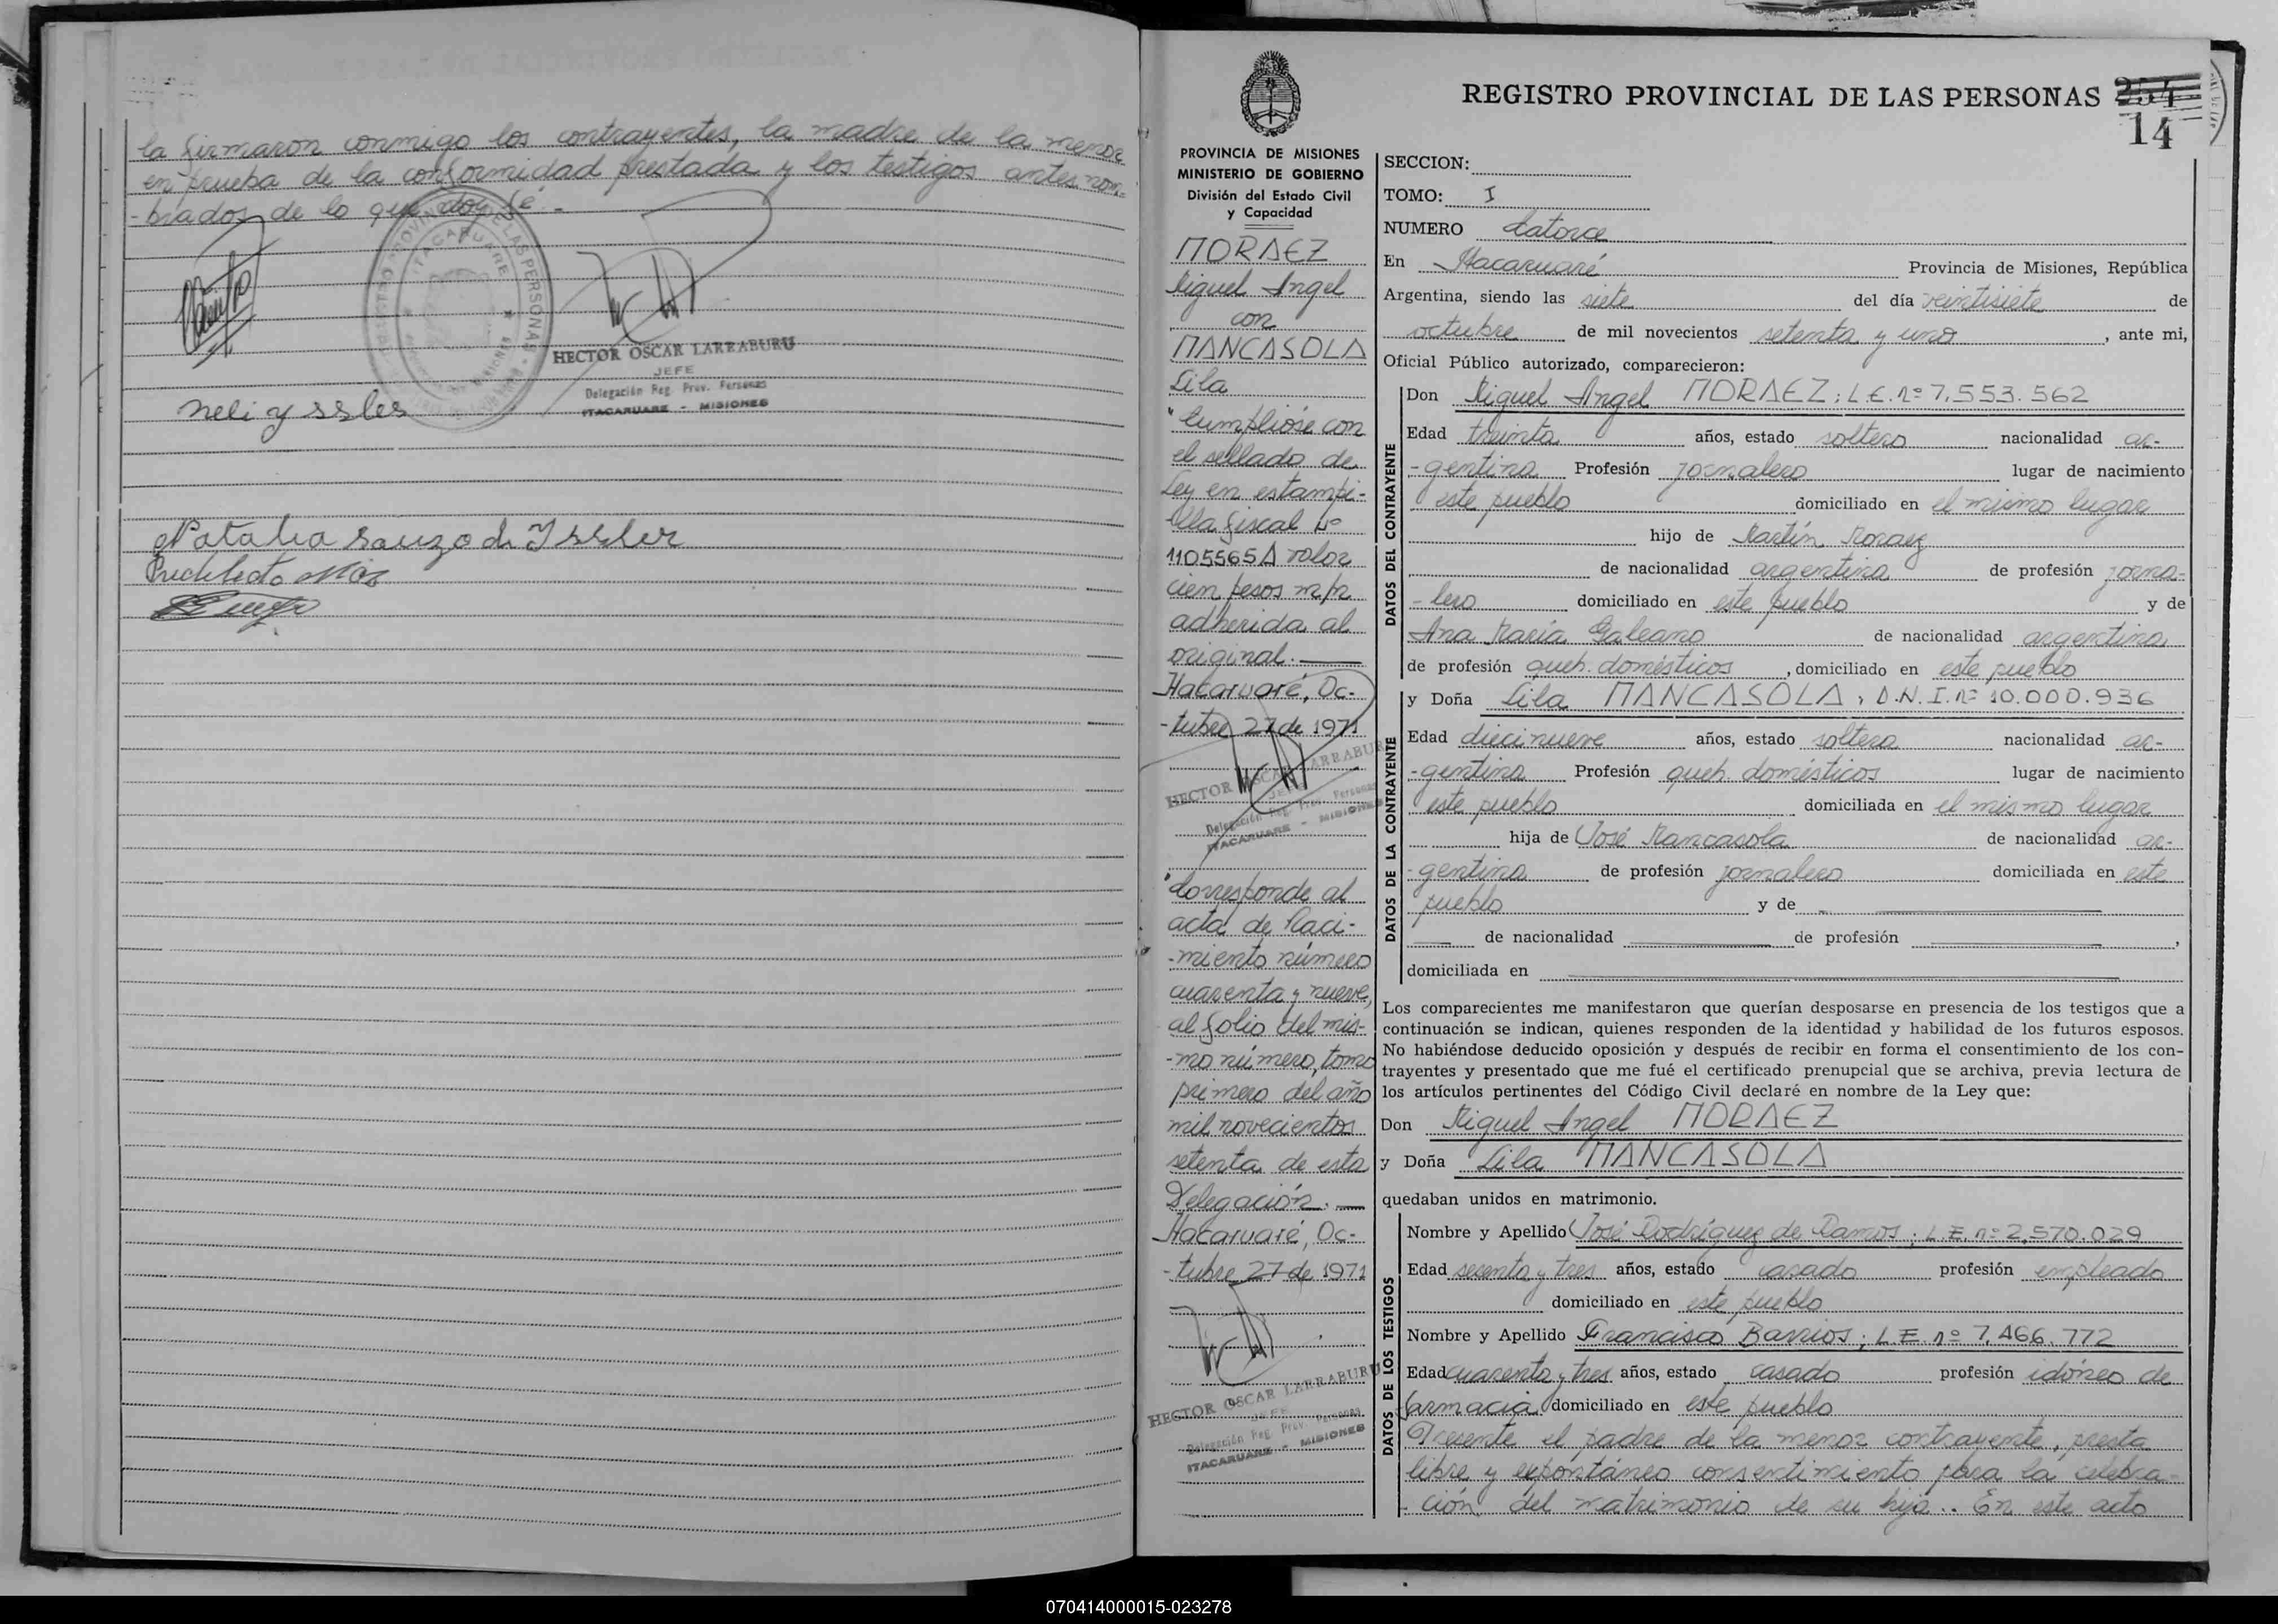 la firmaron conmigo los contrayentes, la madre de la menor
en prueba de la conformidad prestada y los testigos antes nom-
-brados de lo que doy fé.-
HECTOR OSCAR LARRABURU
JEFE
Delegación Reg. Prov. Personas
ITACARUARE - MISIONES
neli yssler
Natalia Sauzo de Yssler
REGISTRO PROVINCIAL DE LAS PERSONAS 254
14
PROVINCIA DE MISIONES
MINISTERIO DE GOBIERNO
División del Estado Civil
y Capacidad
MORAEZ
Miguel Angel
con
MANCASOLA
Lila
"Cumplióse con
el sellado de
Ley en estampi-
lla fiscal Nº
1105565A valor
cien pesos m/n
adherida al
original.
Itacaruaré, Oc-
-tubre 27 de 1971
HECTOR OSCAR LARRABURU
JEFE
Delegación Reg. Prov. Personas
ITACARUARE - MISIONES
"Corresponde al
acta de Naci-
-miento número
cuarenta y nueve,
al folio del mis-
-mo número, tomo
primero del año
mil novecientos
setenta de esta
Delegación.
Itacaruaré, Oc-
-tubre 27 de 1971
HECTOR OSCAR LARRABURU
JEFE
Delegación Reg. Prov. Personas
ITACARUARE - MISIONES
SECCION:
TOMO: I
NUMERO Catorce
En Itacaruaré Provincia de Misiones, República
Argentina, siendo las siete del día veintisiete de
octubre de mil novecientos setenta y uno, ante mi,
Oficial Público autorizado, comparecieron:
DATOS DEL CONTRAYENTE
Don Miguel Angel MORAEZ; L.E. nº 7.553.562
Edad treinta años, estado soltero nacionalidad ar-
-gentina Profesión jornalero lugar de nacimiento
este pueblo domiciliado en el mismo lugar
hijo de Martín Moraez
de nacionalidad argentina de profesión jorna-
-lero domiciliado en este pueblo y de
Ana María Galeano de nacionalidad argentina
de profesión queh. domésticos, domiciliado en este pueblo
DATOS DE LA CONTRAYENTE
y Doña Lila MANCASOLA, D.N.I. nº 10.000.936
Edad diecinueve años, estado soltera nacionalidad ar-
-gentina Profesión queh. domésticos lugar de nacimiento
este pueblo domiciliada en el mismo lugar
hija de José Mancasola de nacionalidad ar-
-gentina de profesión jornalero domiciliada en este
pueblo y de
de nacionalidad de profesión ,
domiciliada en
Los comparecientes me manifestaron que querían desposarse en presencia de los testigos que a
continuación se indican, quienes responden de la identidad y habilidad de los futuros esposos.
No habiéndose deducido oposición y después de recibir en forma el consentimiento de los con-
trayentes y presentado que me fué el certificado prenupcial que se archiva, previa lectura de
los artículos pertinentes del Código Civil declaré en nombre de la Ley que:
Don Miguel Angel MORAEZ
y Doña Lila MANCASOLA
quedaban unidos en matrimonio.
DATOS DE LOS TESTIGOS
Nombre y Apellido José Rodríguez de Ramos; L.E. nº 2.570.029
Edad sesenta y tres años, estado casado profesión empleado
domiciliado en este pueblo
Nombre y Apellido Francisco Barrios; L.E. nº 7.466.772
Edad cuarenta y tres años, estado casado profesión idóneo de
farmacia domiciliado en este pueblo
Presente el padre de la menor contrayente, presta
libre y expontáneo consentimiento para la celebra-
-ción del matrimonio de su hija.. En este acto
070414000015-023278